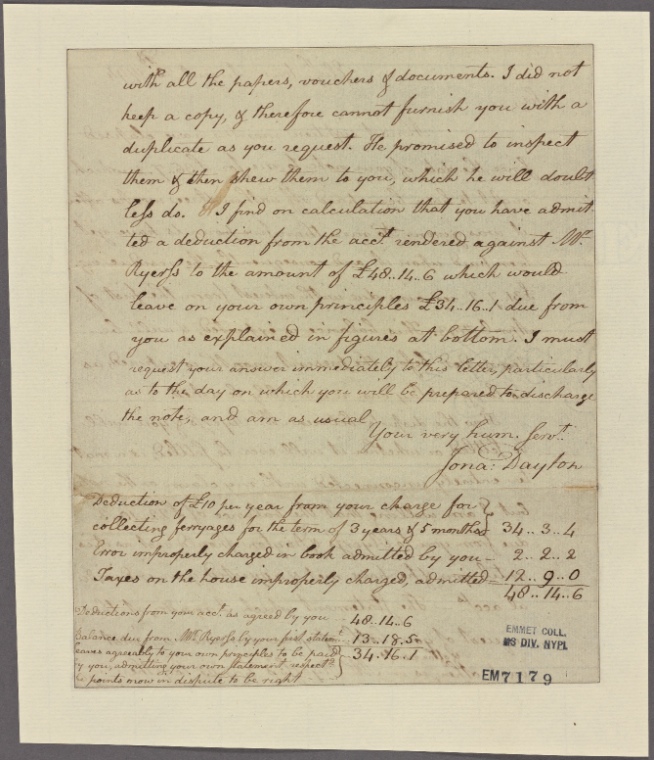 with all the papers, vouchers & documents. I did not
keep a copy, & therefore cannot furnish you with a
duplicate as you request. He promised to inspect
them & then shew them to you, which he will doubt
less do. I find on calculation that you have admit
ted a deduction from the acct. rendered against Mr.
Ryerss to the amount of £48..14..6 which would
leave on your own principles £34..16..1 due from
you as explained in figures at bottom. I must
request your answer immediately to this letter, particularly
as to the day on which you will be prepared to discharge
the note, and am as usual
Your very hum. Servt.
Jona: Dayton
Deduction of £10 per year from your charge for
collecting ferryages for the term of 3 years & 5 months 34..3..4
Error improperly charged in book admitted by you - 2..2..2
Taxes on the house improperly charged, admitted - 12..9..0
48..14..6
Deductions from your acct. as agreed by you - 48..14..6
Balance due from Mr. Ryerss by your first statemt. 13..18..5
leaves agreeably to your own principles to be paid 34..16..1
by you, admitting your own statement respectg.
points now in dispute to be right
EMMET COLL.
MS DIV. NYPL
EM7179